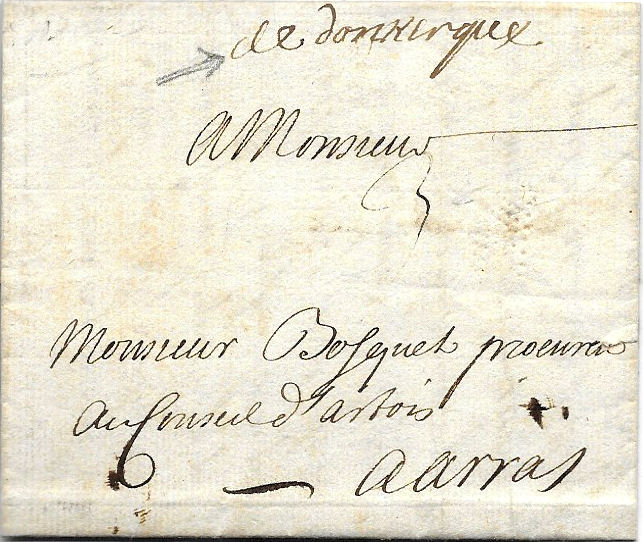 de donkerque
A Monsieur
Monsieur Bosquet procureur
Au Conseil d'artois
a arras